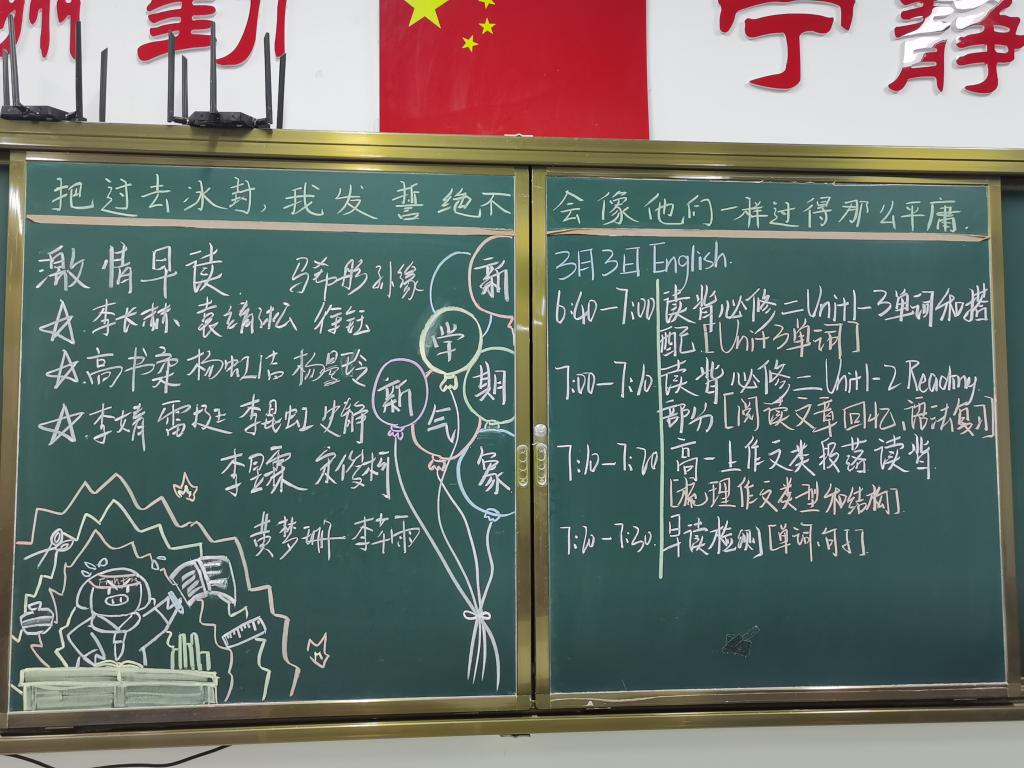 勤
宁静
把过去冰封,我发誓绝不会像他们一样过得那么平庸.
激情早读
马希彤 孙缘
李长赫 袁靖淞 徐钰
高书柔 杨虹洁 杨曼玲
李婧 雷挺 李昆虹 史静
李昱霖 宋俊柯
黄梦珊 李弈雨
新
学
期
新
气
象
3月3日 English.
6:40-7:00 读背必修二Unit1-3单词和搭
配[Unit3单词]
7:00-7:10 读背必修二Unit1-2 Reading
部分[阅读文章回忆,语法复习]
7:10-7:20 高一上作文类投落读背
[梳理作文类型和结构]
7:20-7:30. 早读检测[单词、句子]